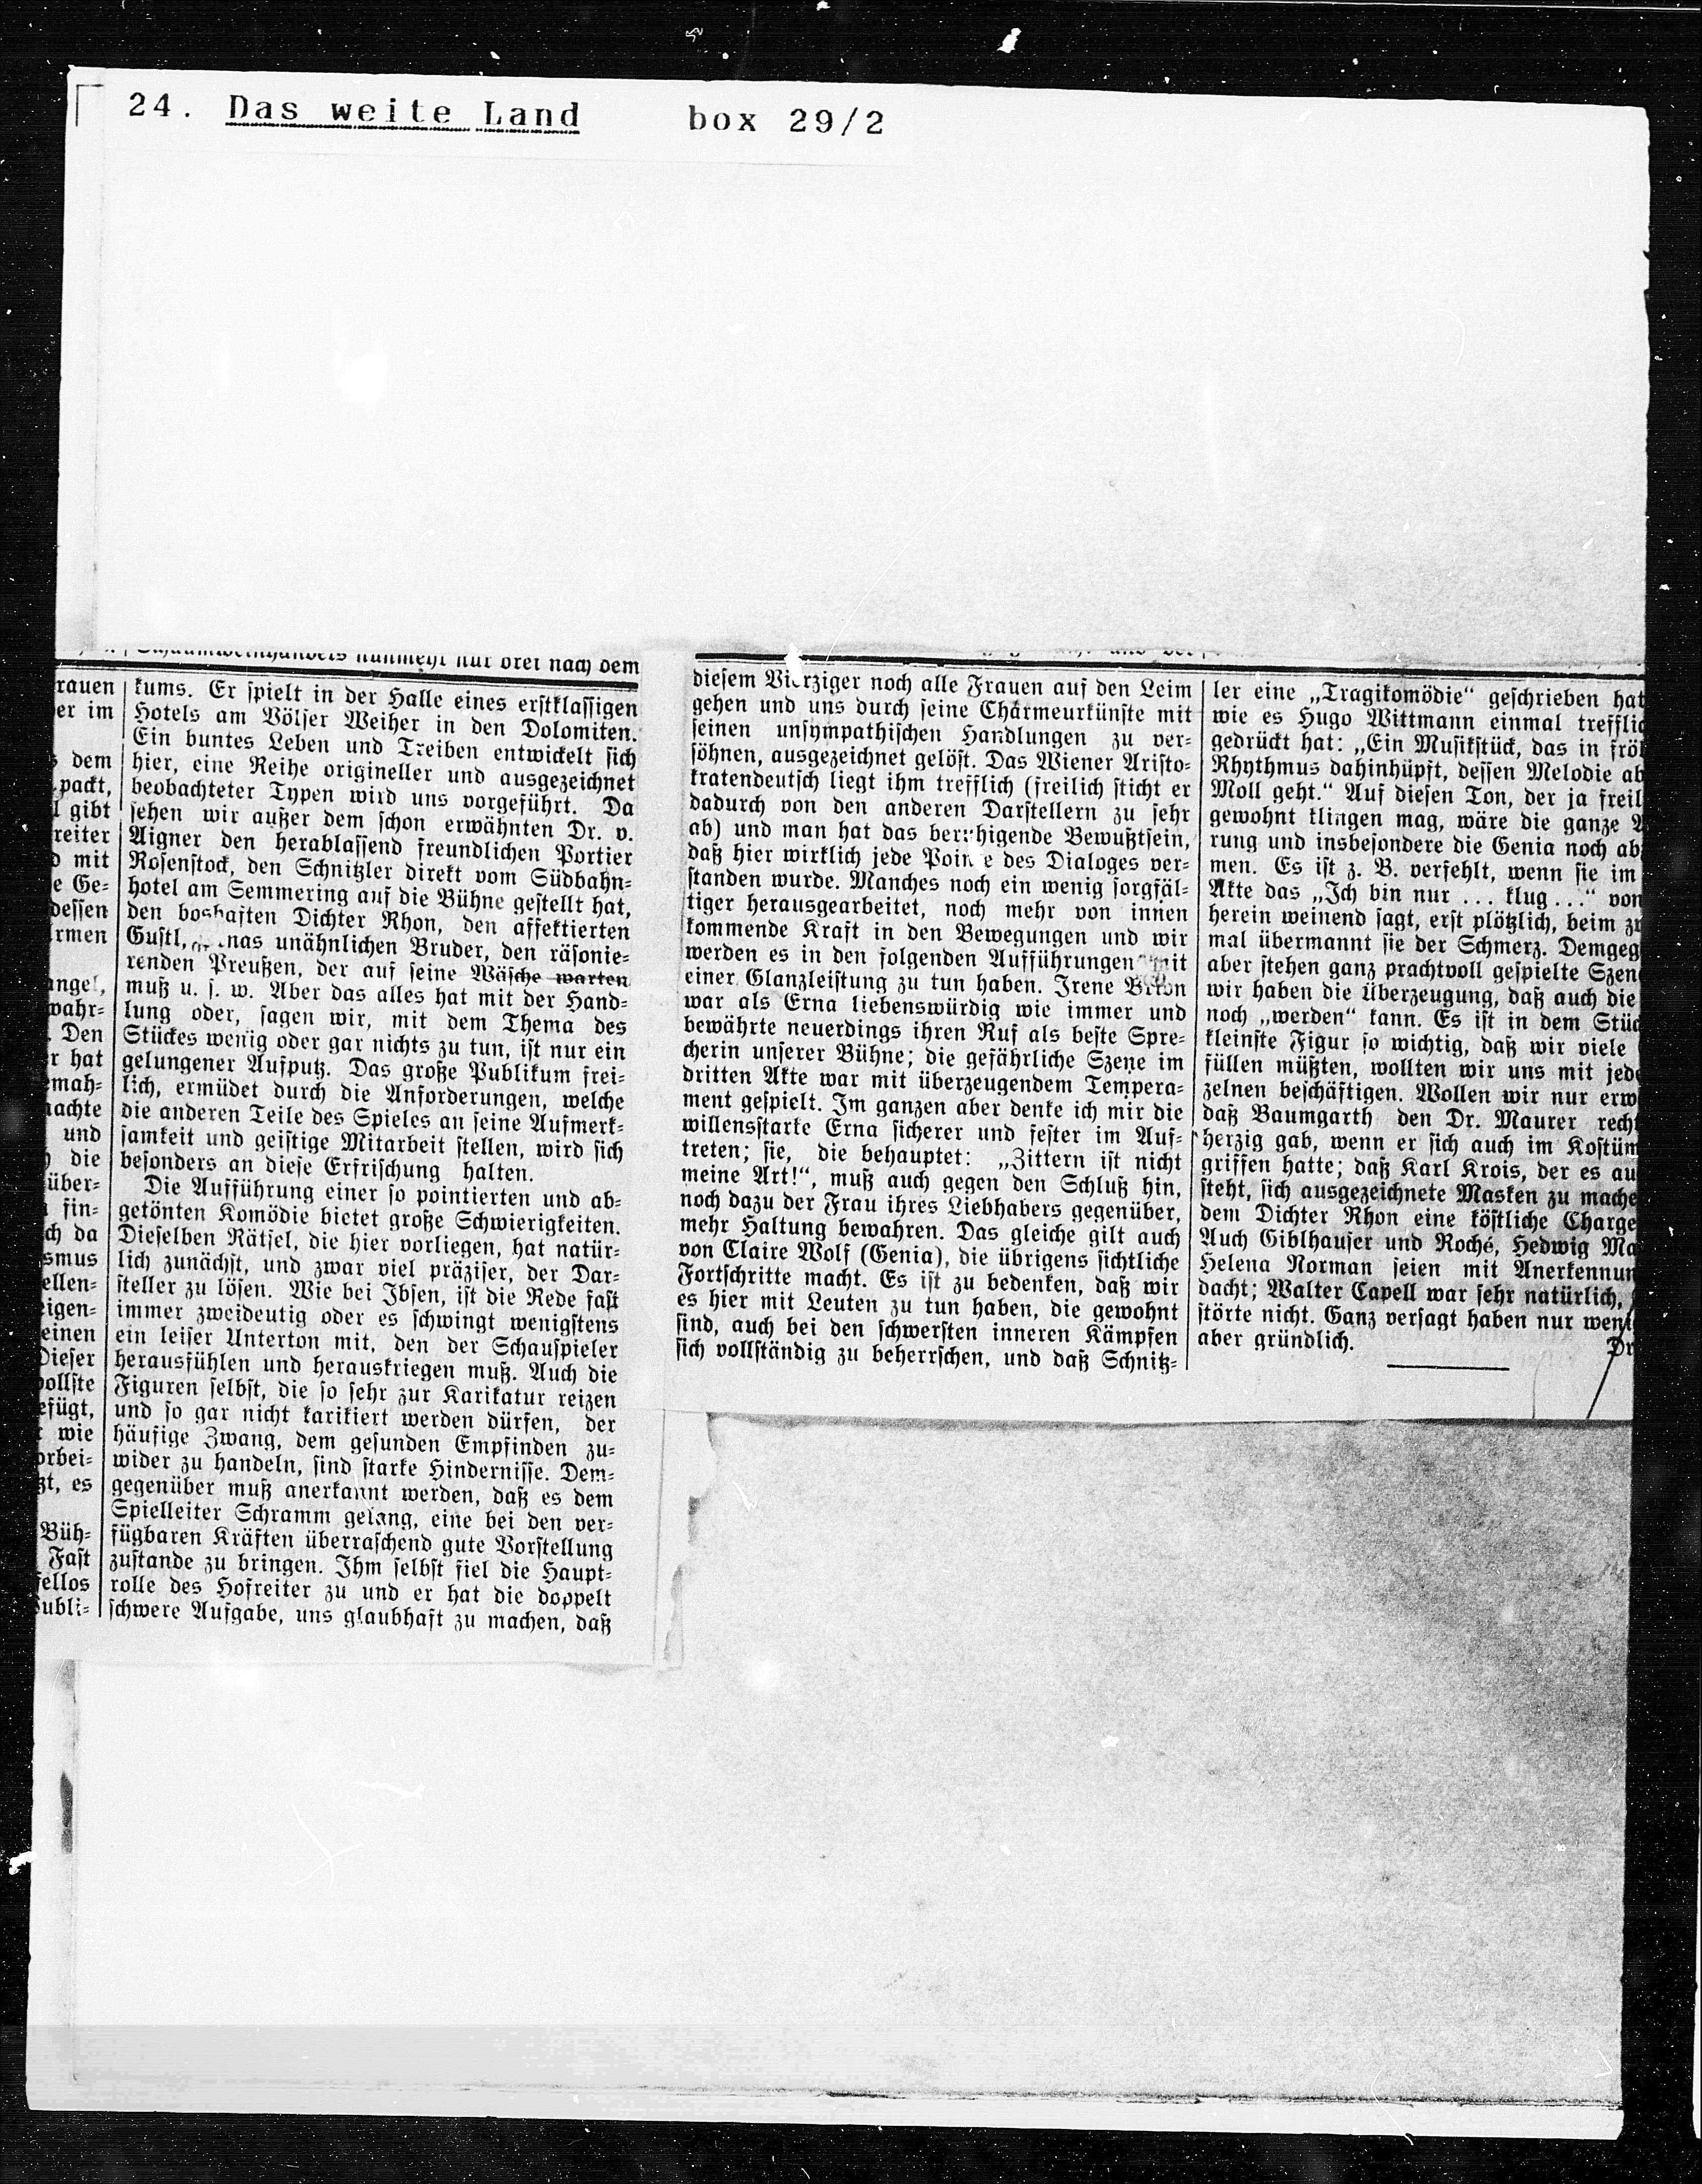 24. Das weite Land box 29/2
nunmehr nur drei nach dem
rauen
er im
dem
packt,
gibt
reiter
mit
e Ge-
dessen
rmen
angel,
wahr-
Den
r hat
emah-
achte
und
die
über-
fin-
ch da
smus
ellen-
eigen-
einen
Dieser
vollste
efügt,
wie
orbei-
zt, es
Büh-
Fast
fellos
Publi-
kums. Er spielt in der Halle eines erstklassigen
Hotels am Völser Weiher in den Dolomiten.
Ein buntes Leben und Treiben entwickelt sich
hier, eine Reihe origineller und ausgezeichnet
beobachteter Typen wird uns vorgeführt. Da
sehen wir außer dem schon erwähnten Dr. v.
Aigner den herablassend freundlichen Portier
Rosenstock, den Schnitzler direkt vom Südbahn-
hotel am Semmering auf die Bühne gestellt hat,
den boshaften Dichter Rhon, den affektierten
Gustl, unähnlichen Bruder, den räsonie-
renden Preußen, der auf seine Wäsche warten
muß u. s. w. Aber das alles hat mit der Hand-
lung oder, sagen wir, mit dem Thema des
Stückes wenig oder gar nichts zu tun, ist nur ein
gelungener Aufputz. Das große Publikum frei-
lich, ermüdet durch die Anforderungen, welche
die anderen Teile des Spieles an seine Aufmerk-
samkeit und geistige Mitarbeit stellen, wird sich
besonders an diese Erfrischung halten.
Die Aufführung einer so pointierten und ab-
getönten Komödie bietet große Schwierigkeiten.
Dieselben Rätsel, die hier vorliegen, hat natür-
lich zunächst, und zwar viel präziser, der Dar-
steller zu lösen. Wie bei Ibsen, ist die Rede fast
immer zweideutig oder es schwingt wenigstens
ein leiser Unterton mit, den der Schauspieler
herausfühlen und herauskriegen muß. Auch die
Figuren selbst, die so sehr zur Karikatur reizen
und so gar nicht karikiert werden dürfen, der
häufige Zwang, dem gesunden Empfinden zu-
wider zu handeln, sind starke Hindernisse. Dem-
gegenüber muß anerkannt werden, daß es dem
Spielleiter Schramm gelang, eine bei den ver-
fügbaren Kräften überraschend gute Vorstellung
zustande zu bringen. Ihm selbst fiel die Haupt-
rolle des Hofreiter zu und er hat die doppelt
schwere Aufgabe, uns glaubhaft zu machen, daß
diesem Vierziger noch alle Frauen auf den Leim
gehen und uns durch seine Charmeurkünste mit
seinen unsympathischen Handlungen zu ver-
söhnen, ausgezeichnet gelöst. Das Wiener Aristo-
kratendeutsch liegt ihm trefflich (freilich sticht er
dadurch von den anderen Darstellern zu sehr
ab) und man hat das beruhigende Bewußtsein,
daß hier wirklich jede Pointe des Dialoges ver-
standen wurde. Manches noch ein wenig sorgfäl-
tiger herausgearbeitet, noch mehr von innen
kommende Kraft in den Bewegungen und wir
werden es in den folgenden Aufführungen mit
einer Glanzleistung zu tun haben. Irene
war als Erna liebenswürdig wie immer und
bewährte neuerdings ihren Ruf als beste Spre-
cherin unserer Bühne; die gefährliche Szene im
dritten Akte war mit überzeugendem Tempera-
ment gespielt. Im ganzen aber denke ich mir die
willensstarke Erna sicherer und fester im Auf-
treten; sie, die behauptet: „Zittern ist nicht
meine Art!“, muß auch gegen den Schluß hin,
noch dazu der Frau ihres Liebhabers gegenüber,
mehr Haltung bewahren. Das gleiche gilt auch
von Claire Wolf (Genia), die übrigens sichtliche
Fortschritte macht. Es ist zu bedenken, daß wir
es hier mit Leuten zu tun haben, die gewohnt
sind, auch bei den schwersten inneren Kämpfen
sich vollständig zu beherrschen, und daß Schnitz-
ler eine „Tragikomödie“ geschrieben hat
wie es Hugo Wittmann einmal trefflic
gedrückt hat: „Ein Musikstück, das in fröh
Rhythmus dahinhüpft, dessen Melodie ab
Moll geht.“ Auf diesen Ton, der ja freil
gewohnt klingen mag, wäre die ganze
rung und insbesondere die Genia noch ab
men. Es ist z. B. verfehlt, wenn sie im
Akte das „Ich bin nur ... klug ...“ von
herein weinend sagt, erst plötzlich, beim z
mal übermannt sie der Schmerz. Demgeg
aber stehen ganz prachtvoll gespielte Szen
wir haben die Überzeugung, daß auch die
noch „werden“ kann. Es ist in dem Stüc
kleinste Figur so wichtig, daß wir viele
füllen müßten, wollten wir uns mit jede
zelnen beschäftigen. Wollen wir nur erw
daß Baumgarth den Dr. Maurer recht
herzig gab, wenn er sich auch im Kostüm
griffen hatte; daß Karl Krois, der es au
steht, sich ausgezeichnete Masken zu mache
dem Dichter Rhon eine köstliche Charge
Auch Giblhauser und Roché, Hedwig Ma
Helena Norman seien mit Anerkennun
dacht; Walter Capell war sehr natürlich,
störte nicht. Ganz versagt haben nur weni
aber gründlich. Dr